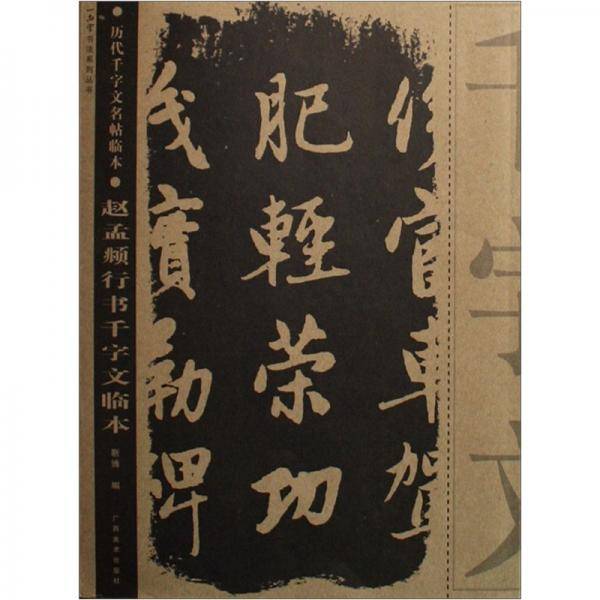 书法系列丛书
●历代千字文名帖临本●
赵孟𫖯行书千字文临本
编
广西美术出版社
侈富車駕
肥輕策功
茂實勒碑
千字文